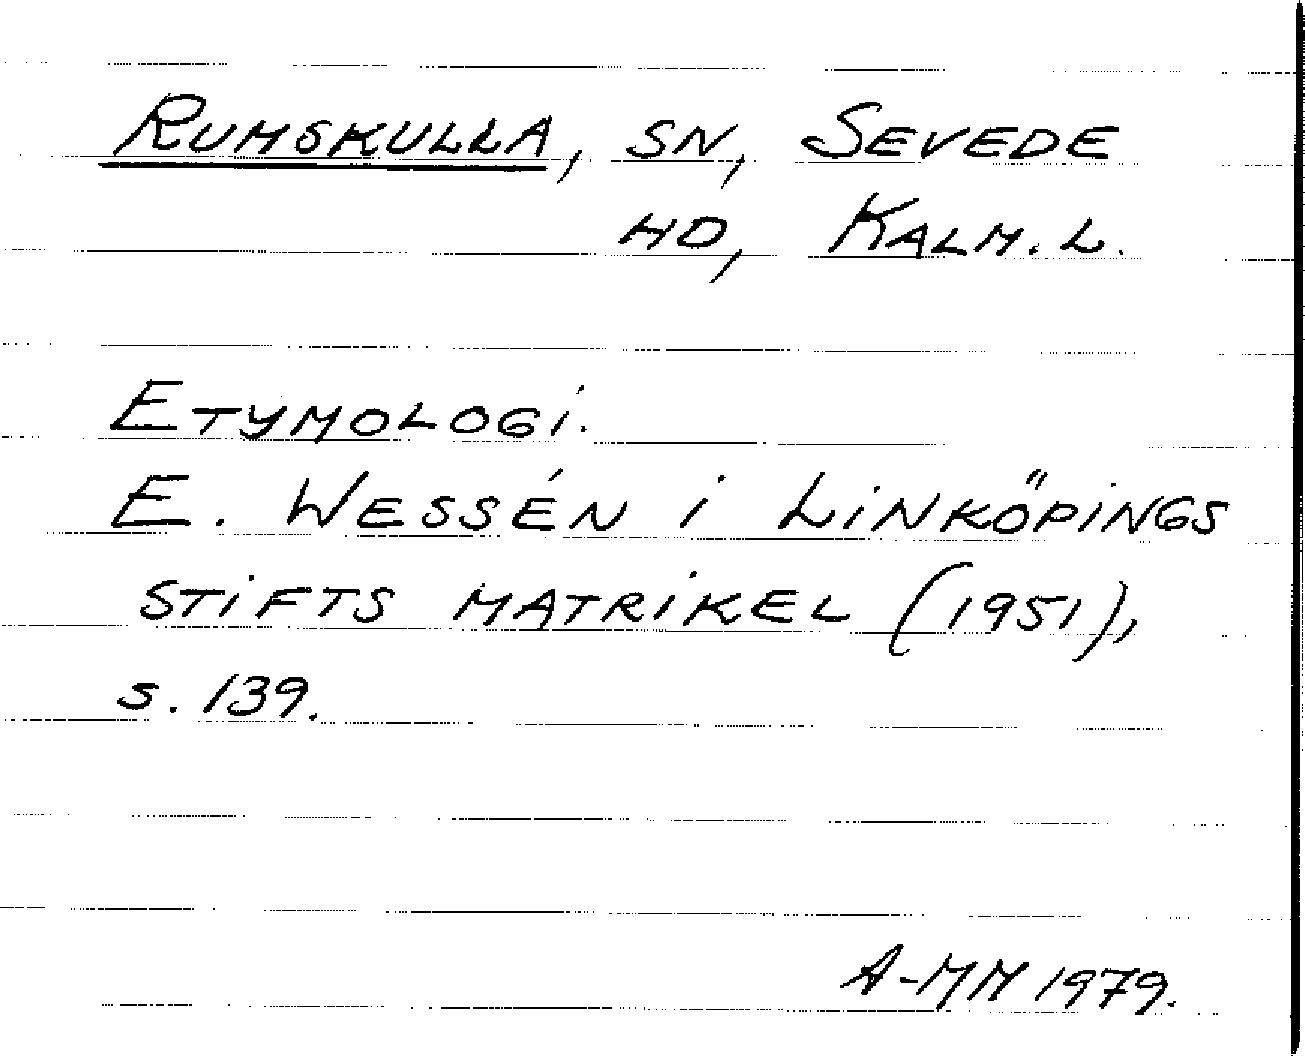 RUMSKULLA, SN, SEVEDE
HD, KALM. L.
ETYMOLOGI.
E. WESSÉN I LINKÖPINGS
STIFTS MATRIKEL (1951),
S. 139.
A-MM 1979.